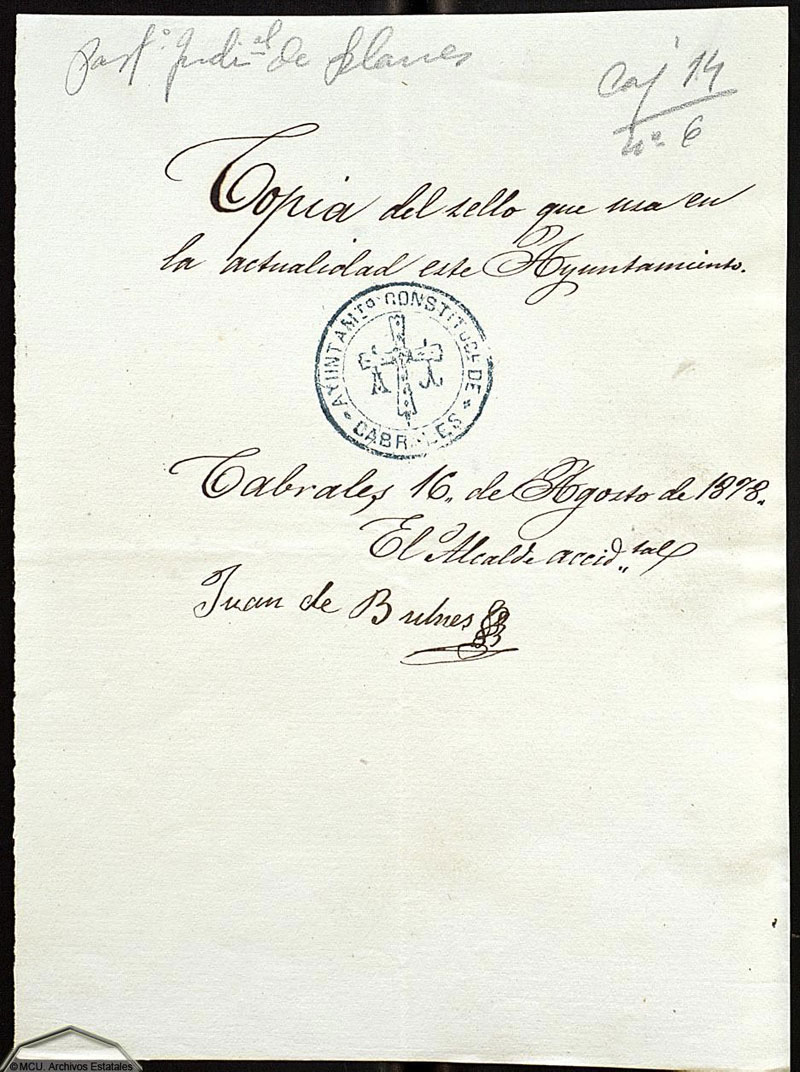 Part.º Judi.al de Llanes
Caj 14
nº 6
Copia del sello que usa en
la actualidad este Ayuntamiento.
AYUNTAMTO CONSTITUCL DE
CABRALES
A
Cabrales, 16,, de Agosto de 1878.
El Alcalde accid,,tal
Juan de Bulnes
© MCU. Archivos Estatales